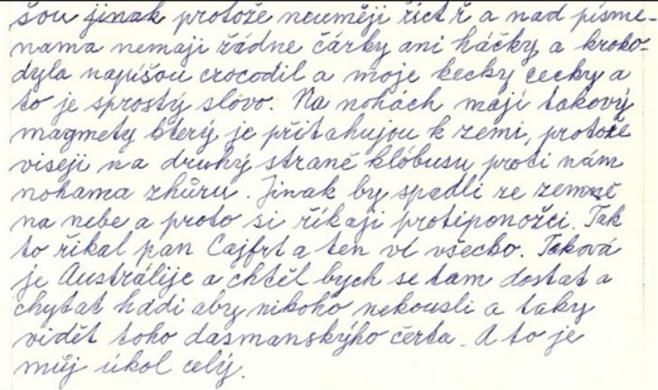 šou jinak protože neuměji řict ř a nad písme-
nama nemaji žádne čárky ani háčky a kroko-
dyla napíšou crocodil a moje kecky cecky a
to je sprostý slovo. Na nohách mají takový
magmety který je přitahujou k zemi, protože
viseji na druhý straně klóbusu proti nám
nohama zhůru. Jinak by spadli ze zemně
na nebe a proto si řikaji protiponožci. Tak
to řikal pan Cajfrt a ten ví všecko. Taková
je Austrálije a chtěl bych se tam dostat a
chytat hddi aby nikoho nekousli a taky
vidět toho dasmanskýho čerta. A to je
můj úkol celý.